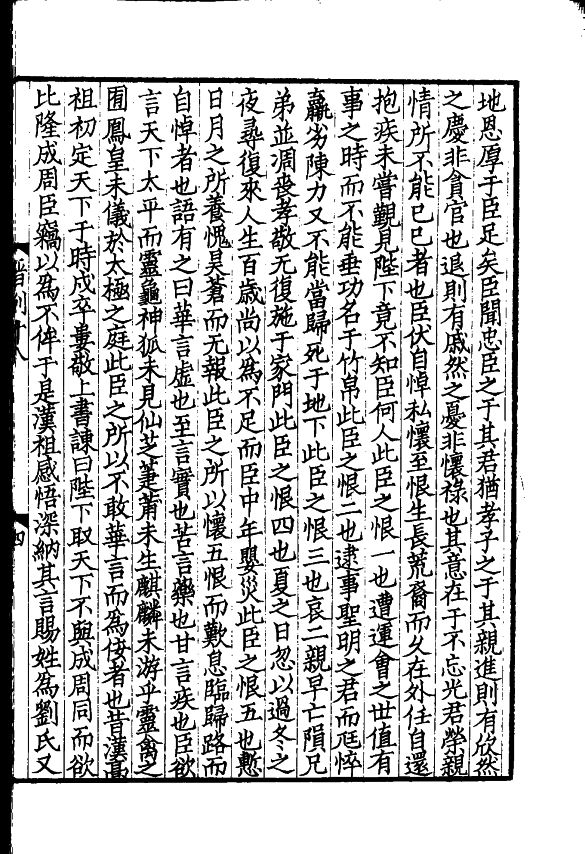 地恩厚于臣足矣臣聞忠臣之于其君猶孝子之于其親進則有欣然
之慶非貪官也退則有戚然之憂非懷祿也其意在于不忘光君榮親
情所不能已已者也臣伏自悼私懷至恨生長荒裔而久在外任自還
抱疾未嘗覲見陛下竟不知臣何人此臣之恨一也遭運會之世值有
事之時而不能垂功名于竹帛此臣之恨二也逮事聖明之君而尫悴
羸劣陳力又不能當歸死于地下此臣之恨三也哀二親早亡隕兄
弟並凋喪孝敬无復施于家門此臣之恨四也夏之日忽以過冬之
夜尋復來人生百歲尚以為不足而臣中年嬰災此臣之恨五也慙
日月之所養愧昊蒼而无報此臣之所以懷五恨而歎息臨歸路而
自悼者也語有之曰華言虛也至言實也苦言藥也甘言疾也臣欲
言天下太平而靈龜神狐未見仙芝萐莆未生麒麟未游乎靈禽之
囿鳳皇未儀於太極之庭此臣之所以不敢華言而為佞者也昔漢高
祖初定天下于時戍卒婁敬上書諫曰陛下取天下不與成周同而欲
比隆成周臣竊以為不侔于是漢祖感悟深納其言賜姓為劉氏又
晉列十八
四